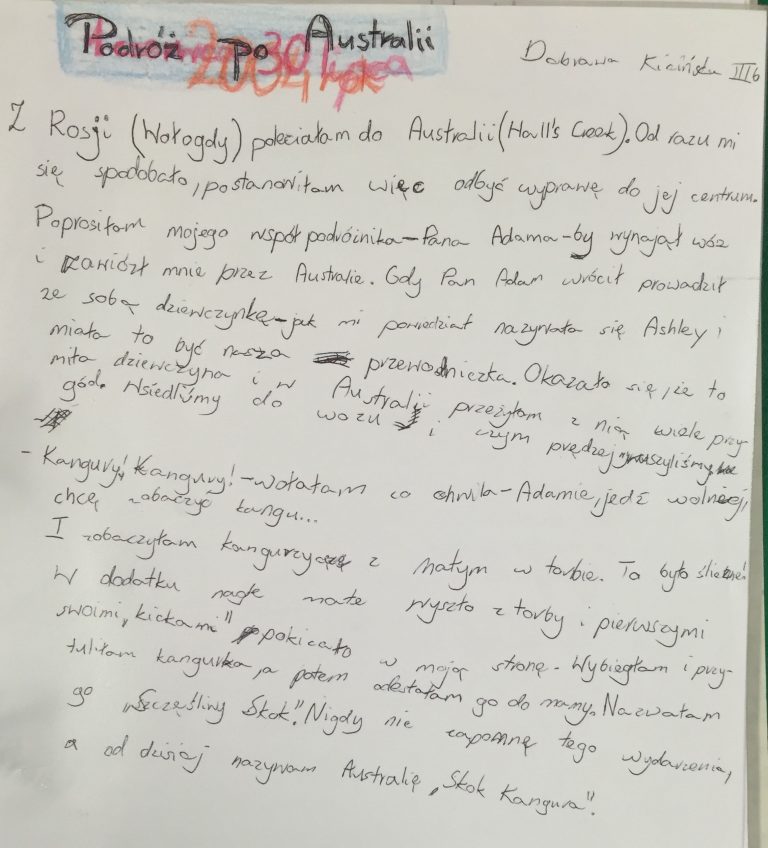 Podróż po Australii
Dobrawa Kicińska III b
Z Rosji (Wołogdy) poleciałam do Australii (Hall's Creek). Od razu mi
się spodobało, postanowiłam więc odbyć wyprawę do jej centrum.
Poprosiłam mojego współpodróżnika - Pana Adama - by wynajął wóz
i zawiózł mnie przez Australię. Gdy Pan Adam wrócił prowadził
ze sobą dziewczynkę - jak mi powiedział nazywała się Ashley i
miała to być nasza przewodniczka. Okazało się, że to
miła dziewczyna i w Australii przeżyłam z nią wiele przy-
gód. Wsiedliśmy do wozu i czym prędzej ruszyliśmy
- Kangury! Kangury! - wołałam co chwila - Adamie, jedź wolniej,
chcę zobaczyć kangu...
I zobaczyłam kangurzycę z małym w torbie. To było śliczne!
W dodatku nagle małe wyszło z torby i pierwszymi
swoimi „kickami" pokicało w moją stronę. Wybiegłam i przy-
tuliłam kangurka, a potem odesłałam go do mamy. Nazwałam
go „Szczęśliwy Skok". Nigdy nie zapomnę tego wydarzenia,
a od dzisiaj nazywam Australię „Skok Kangura".